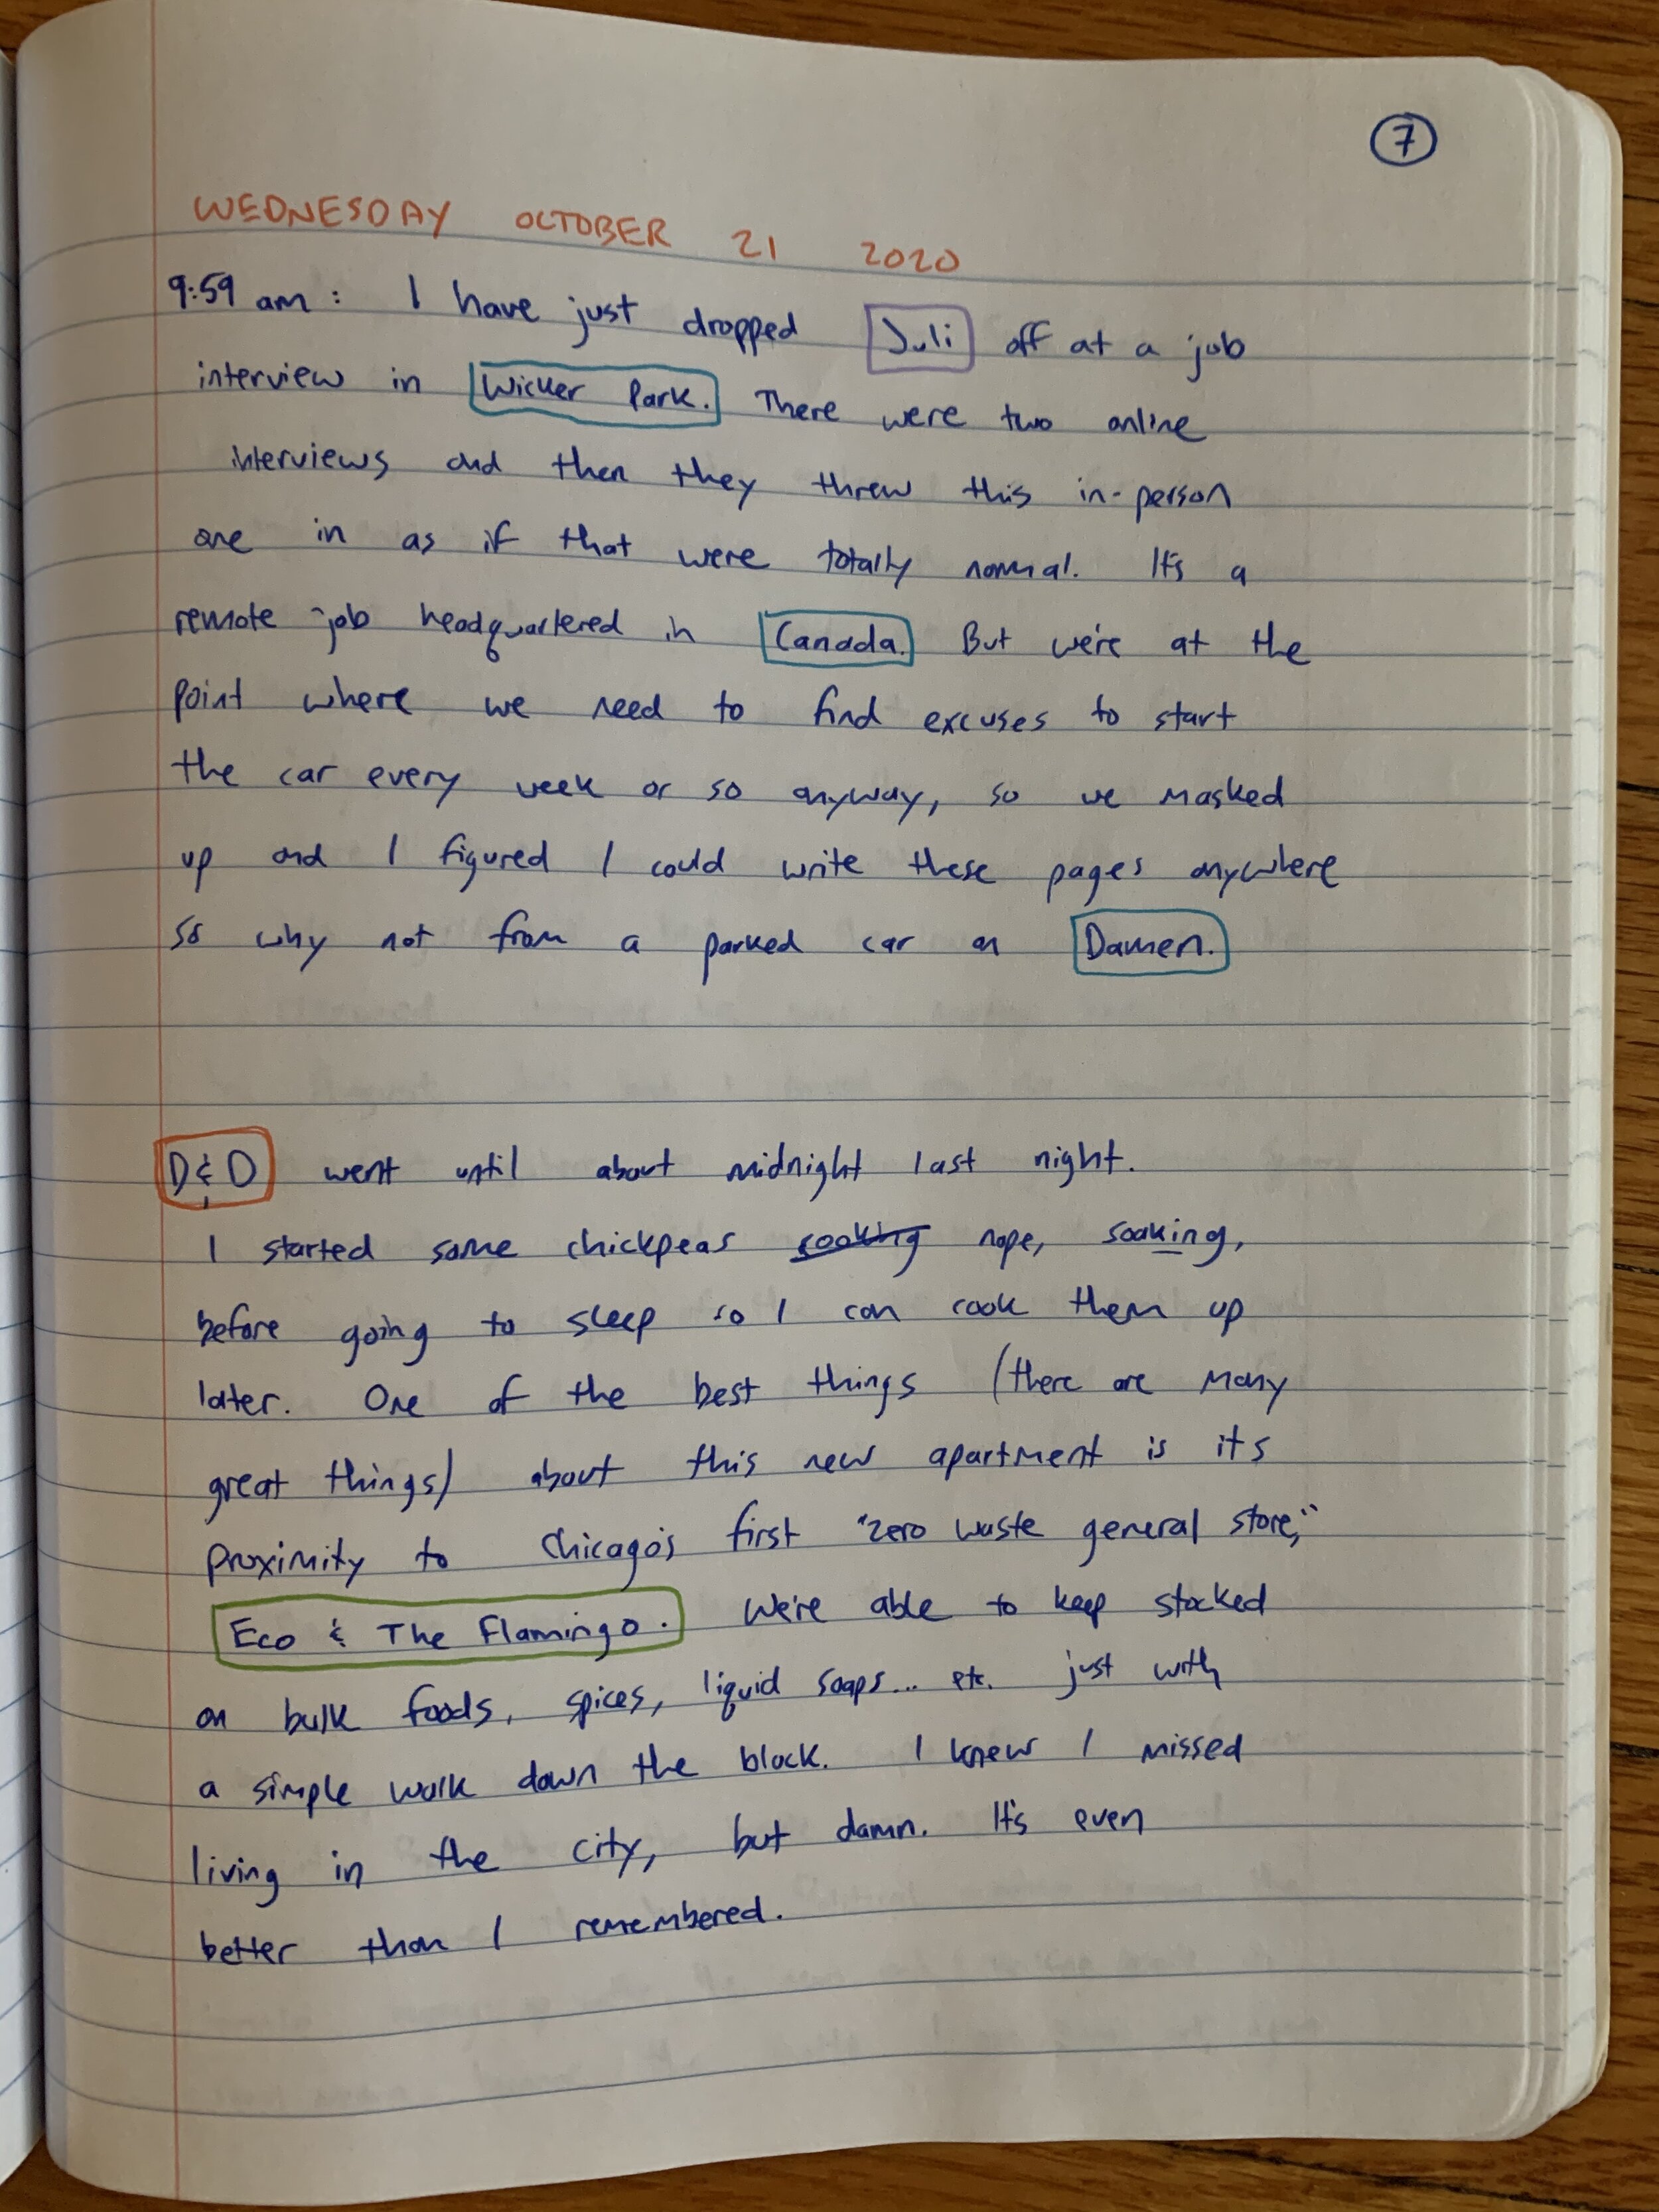 7
WEDNESDAY OCTOBER 21 2020
9:59 am: I have just dropped Juli off at a job
interview in Wicker Park. There were two online
interviews and then they threw this in-person
one in as if that were totally normal. It's a
remote job headquartered in Canada. But we're at the
point where we need to find excuses to start
the car every week or so anyway, so we masked
up and I figured I could write these pages anywhere
so why not from a parked car on Damen.
D & D went until about midnight last night.
I started some chickpeas cooking nope, soaking,
before going to sleep so I can cook them up
later. One of the best things (there are many
great things) about this new apartment is its
proximity to Chicago's first "zero waste general store,"
Eco & The Flamingo. We're able to keep stocked
on bulk foods, spices, liquid soaps... etc. just with
a simple walk down the block. I knew I missed
living in the city, but damn. It's even
better than I remembered.